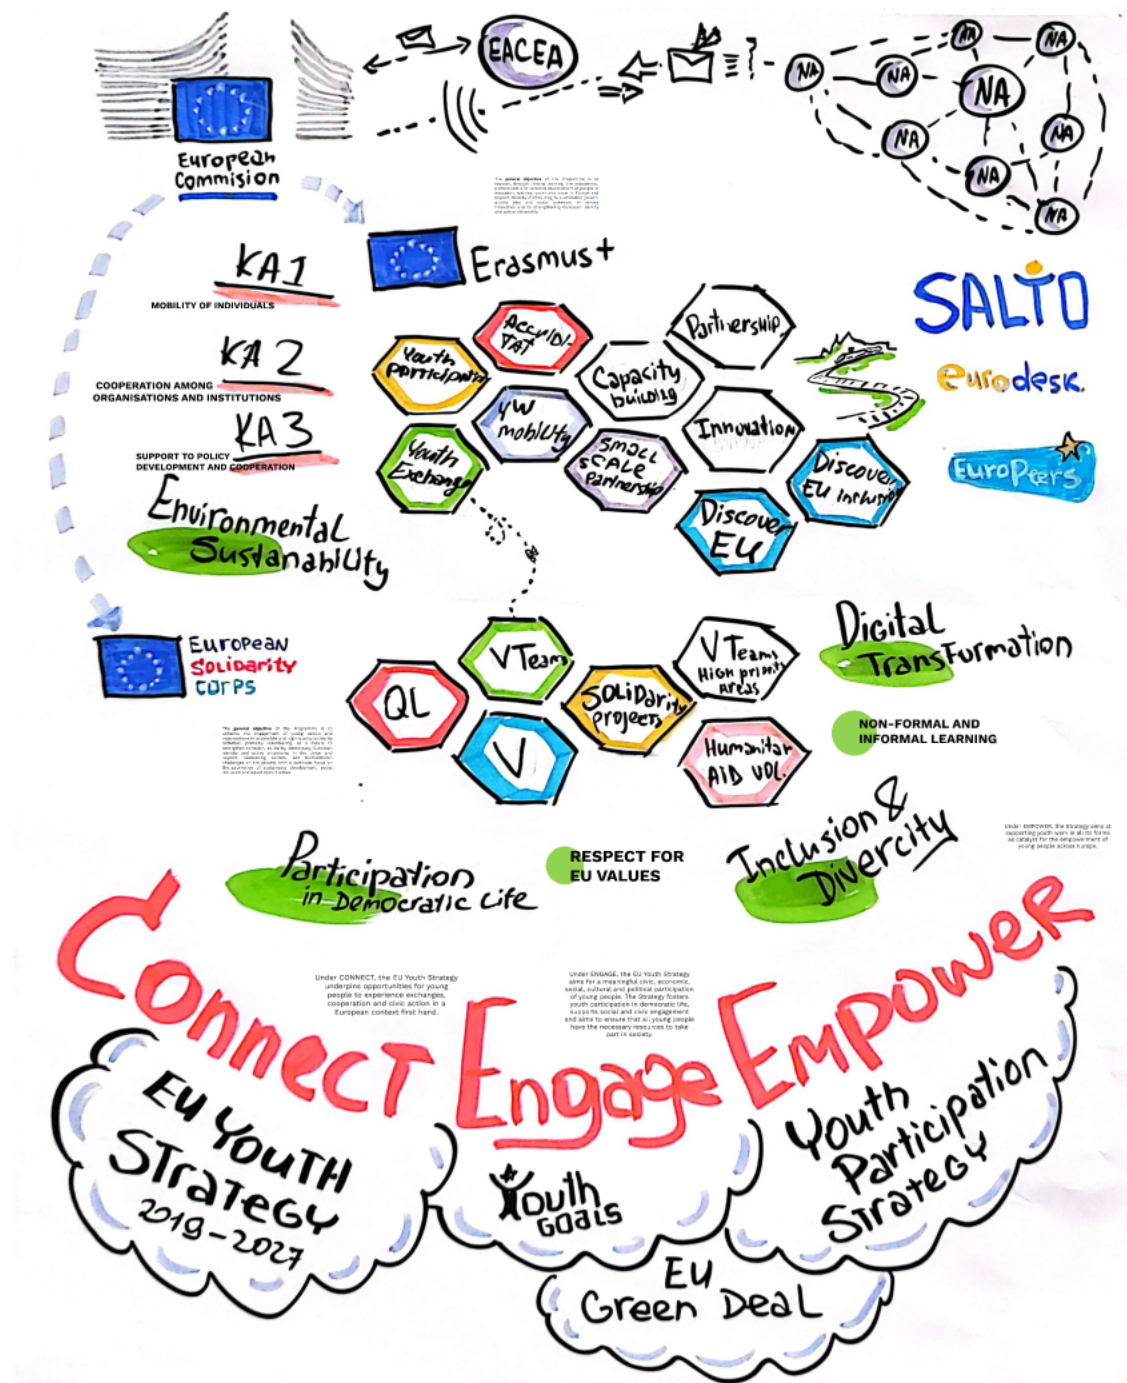 EACEA
NA
NA
NA
NA
NA
NA
NA
NA
NA
European
Commision
The general objective of the Programme is to
Erasmus+
KA1
MOBILITY OF INDIVIDUALS
KA2
COOPERATION AMONG
ORGANISATIONS AND INSTITUTIONS
KA3
SUPPORT TO POLICY
DEVELOPMENT AND COOPERATION
Youth
participat
Accridi-
TAT
Partnership
Capacity
building
YW
mobility
Innovation
Youth
Exchange
Small
SCALE
partnership
Discover
EU inclusio
Discover
EU
SALTO
eurodesk.
EuroPeers
Environmental
Sustanability
European
Solidarity
Corps
The general objective of the Programme is to
QL
VTeams
V
SOLiDarity
projects
VTeams
High priority
Areas
Humanitar
AiD VOL.
Digital
TransFormation
NON-FORMAL AND
INFORMAL LEARNING
Participation
in Democratic Life
RESPECT FOR
EU VALUES
Inclusion &
Divercity
Under EMPOWER, the Strategy aims at
supporting youth work in all its forms
as catalyst for the empowerment of
young people across Europe.
Connect
Engage
Empower
Under CONNECT, the EU Youth Strategy
underpins opportunities for young
people to experience exchanges,
cooperation and civic action in a
European context first hand.
Under ENGAGE, the EU Youth Strategy
aims for a meaningful civic, economic,
social, cultural and political participation
of young people. The Strategy fosters
youth participation in democratic life,
supports social and civic engagement
and aims to ensure that all young people
have the necessary resources to take
part in society.
EU YOUTH
STrATEGY
2019-2027
Youth
GOALS
Youth
Participation
Strategy
EU
Green Deal